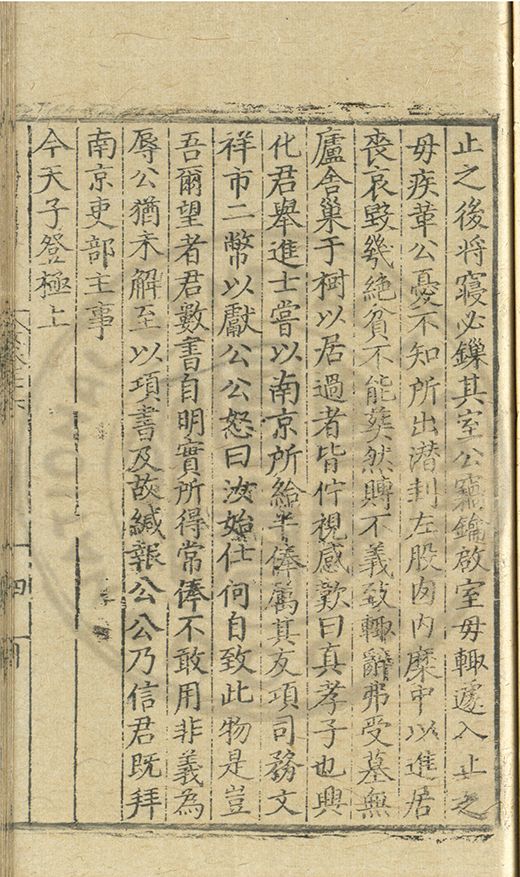 止之後將寢必鏁其室公竊鑰啟室毋輙遽入止之
毋疾革公憂不知所出潛刲左股肉内糜中以進居
喪哀毀幾絶貧不能葬然賻不義致輙辭弗受墓無
廬舎巢于樹以居過者皆佇視感歎曰真孝子也興
化君舉進士嘗以南京所給半俸寓其友項司務文
祥市二幣以獻公公怒曰汝始仕何自致此物是豈
吾爾望者君數書自明實所得常俸不敢用非義為
辱公猶未解至以項書及故緘報公公乃信君既拜
南京吏部主事
今天子登極上
四